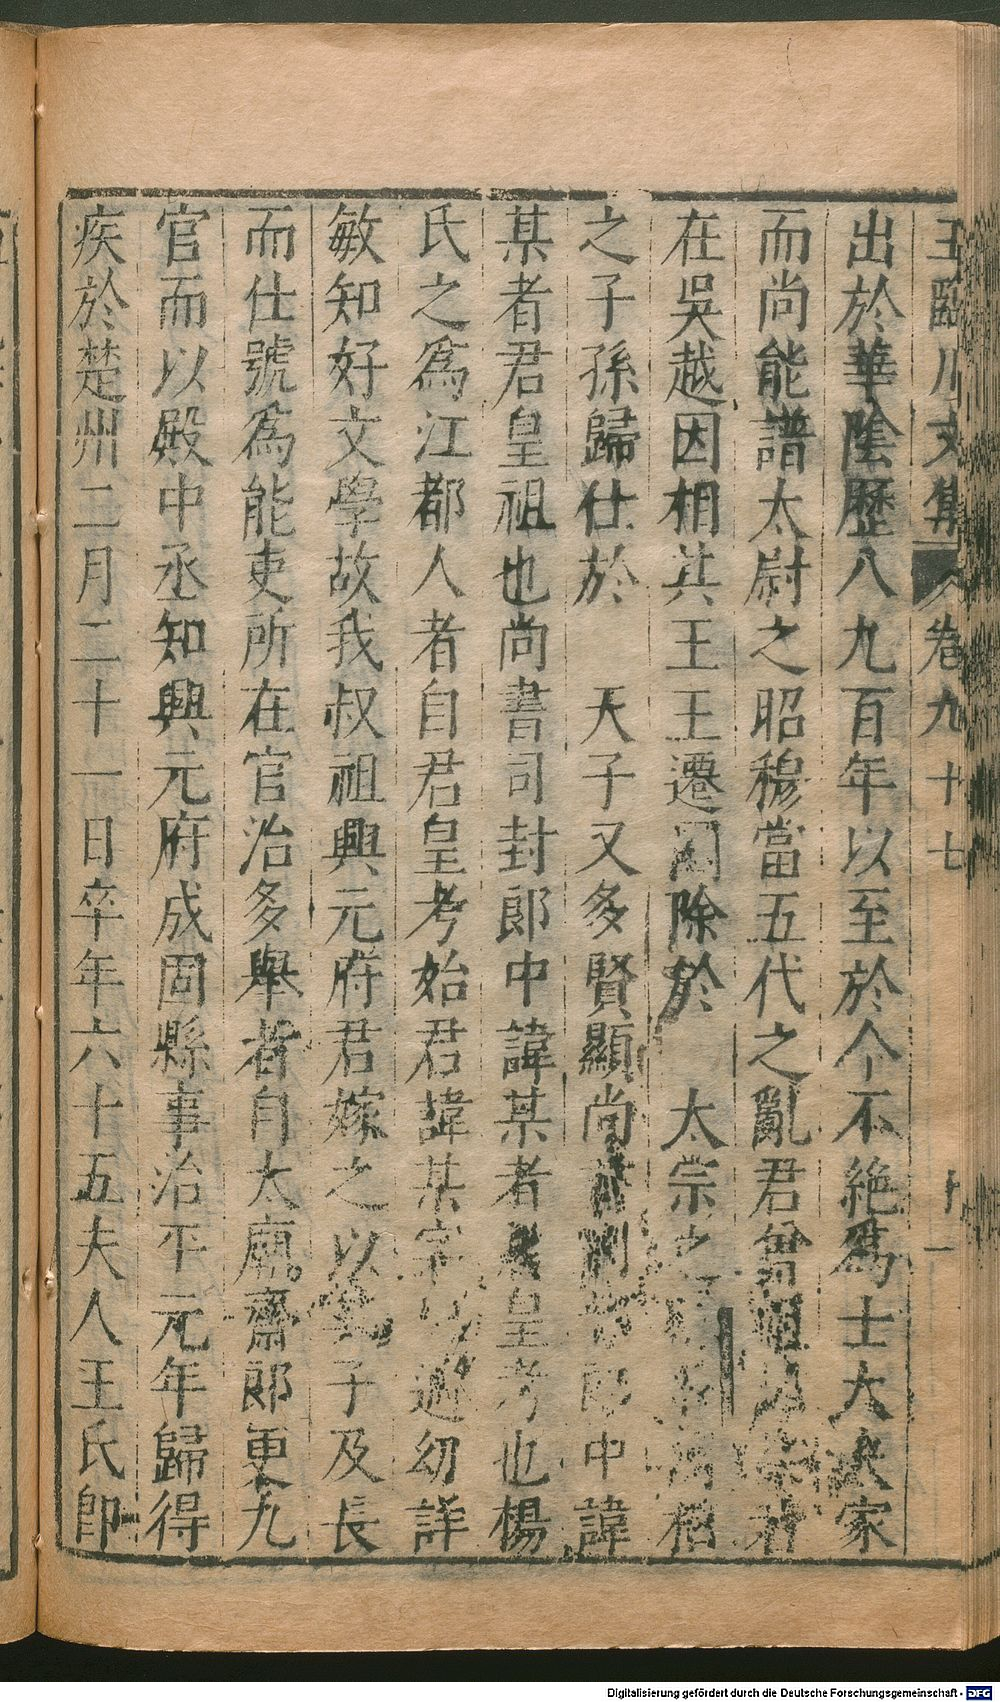 王臨川文集 卷九十七 十一
出於華陰歷八九百年以至於今不絶爲士大夫家
而尚能譜太尉之昭穆當五代之亂君曾祖
在吳越因相其王王遷國除於 太宗之
之子孫歸仕於 天子又多賢顯尚書 郎中諱
某者君皇祖也尚書司封郎中諱某者君皇考也楊
氏之爲江都人者自君皇考始君諱某字 幼詳
敏知好文學故我叔祖興元府君嫁之以其子及長
而仕號爲能吏所在官治多舉者自太廟齋郎更九
官而以殿中丞知興元府成固縣事治平元年歸得
疾於楚州二月二十一日卒年六十五夫人王氏卽
Digitalisierung gefördert durch die Deutsche Forschungsgemeinschaft - DFG